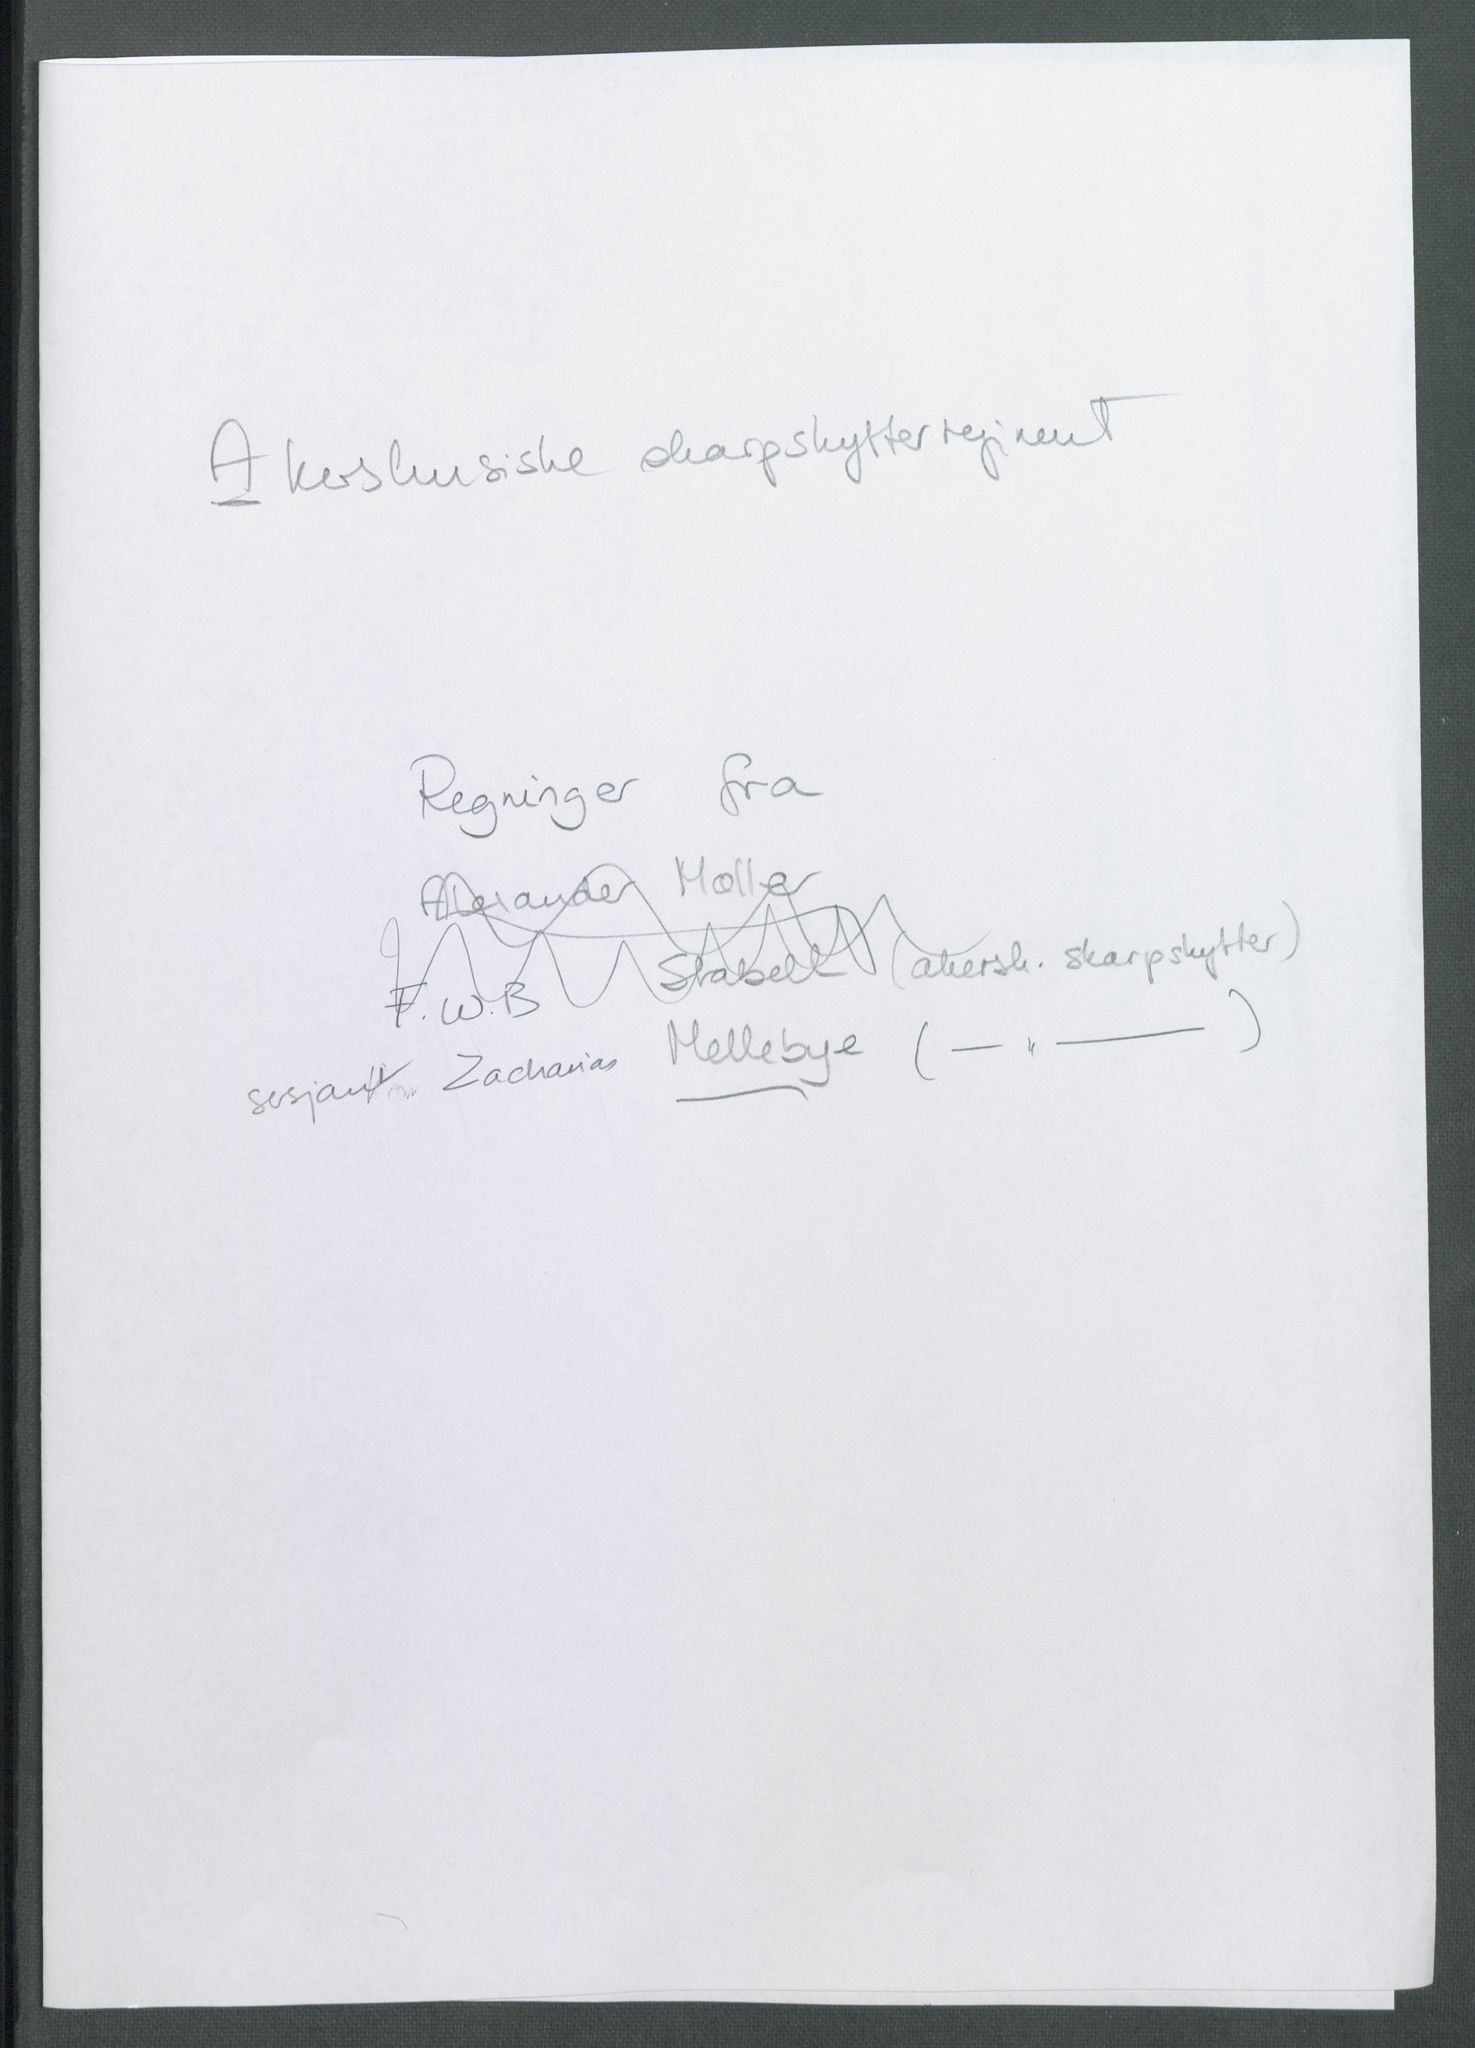 Akershusiske skarpskytterregiment
Regninger fra
Alexander Møller
F.W.B Stabell (akersh. skarpskytter)
sersjant Zacharias Mellebye ( — " — )